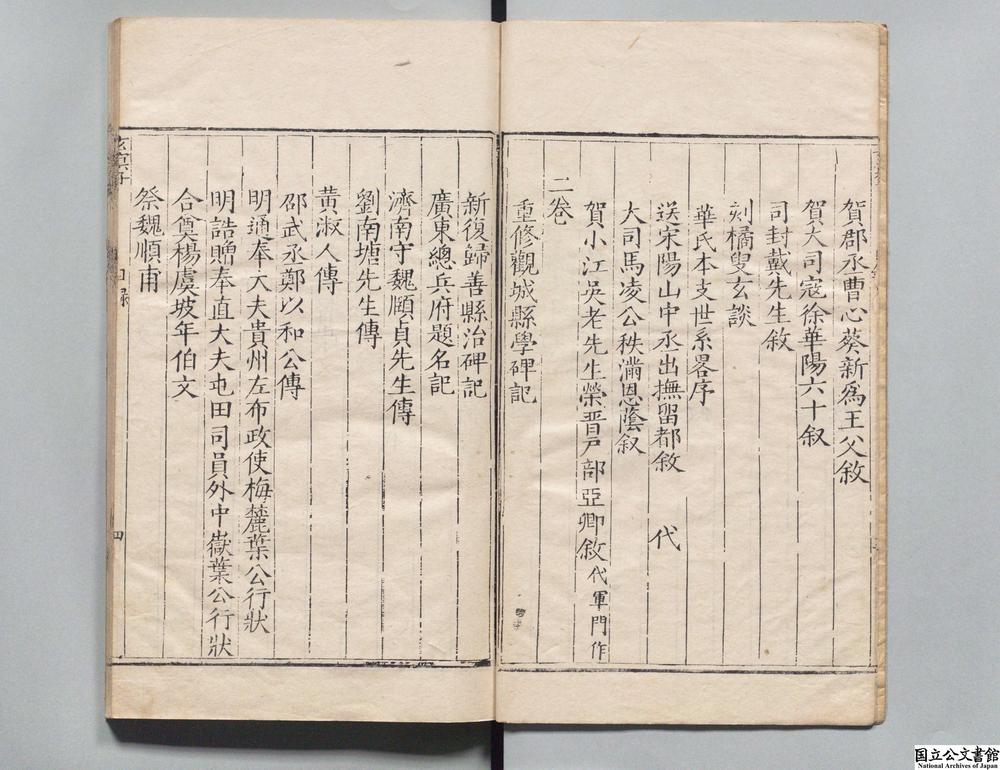 賀郡丞曹心葵新爲王父敘
賀大司寇徐華陽六十叙
司封戴先生敘
刻橘叟玄談
華氏本支世系畧序
送宋陽山中丞出撫留都敘　代
大司馬凌公秩滿恩蔭叙
賀小江吳老先生榮晉戸部亞卿敘代軍門作
二卷
重修觀城縣學碑記
新復歸善縣治碑記
廣東總兵府題名記
濟南守魏順貞先生傳
劉南塘先生傳
黃淑人傳
邵武丞鄭以和公傳
明通奉大夫貴州左布政使梅麓葉公行狀
明誥贈奉直大夫屯田司員外中嶽葉公行狀
合奠楊虞坡年伯文
祭魏順甫
目錄
四
国立公文書館
National Archives of Japan